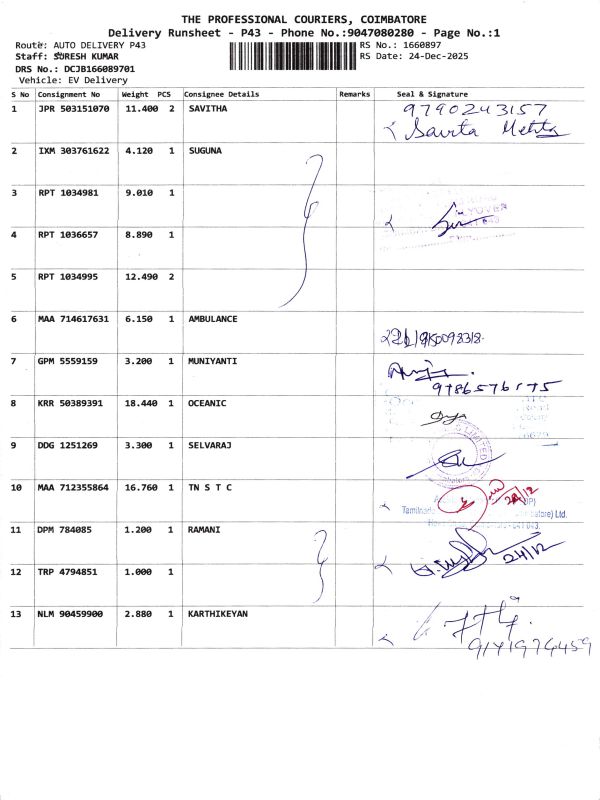 THE PROFESSIONAL COURIERS, COIMBATORE
Delivery Runsheet - P43 - Phone No.:9047080280 - Page No.:1
Route: AUTO DELIVERY P43
RS No.: 1660897
Staff: SURESH KUMAR
RS Date: 24-Dec-2025
DRS No.: DCJB166089701
Vehicle: EV Delivery
S No Consignment No Weight PCS Consignee Details Remarks Seal & Signature
1 JPR 503151070 11.400 2 SAVITHA 9790243157
Savita Mehta
2 IXM 303761622 4.120 1 SUGUNA
3 RPT 1034981 9.010 1
4 RPT 1036657 8.890 1
5 RPT 1034995 12.490 2
6 MAA 714617631 6.150 1 AMBULANCE
7 GPM 5559159 3.200 1 MUNIYANTI
9786576175
8 KRR 50389391 18.440 1 OCEANIC
9 DDG 1251269 3.300 1 SELVARAJ
10 MAA 712355864 16.760 1 TN S T C 24/12
Ltd.
11 DPM 784085 1.200 1 RAMANI
24/12
12 TRP 4794851 1.000 1
13 NLM 90459900 2.880 1 KARTHIKEYAN